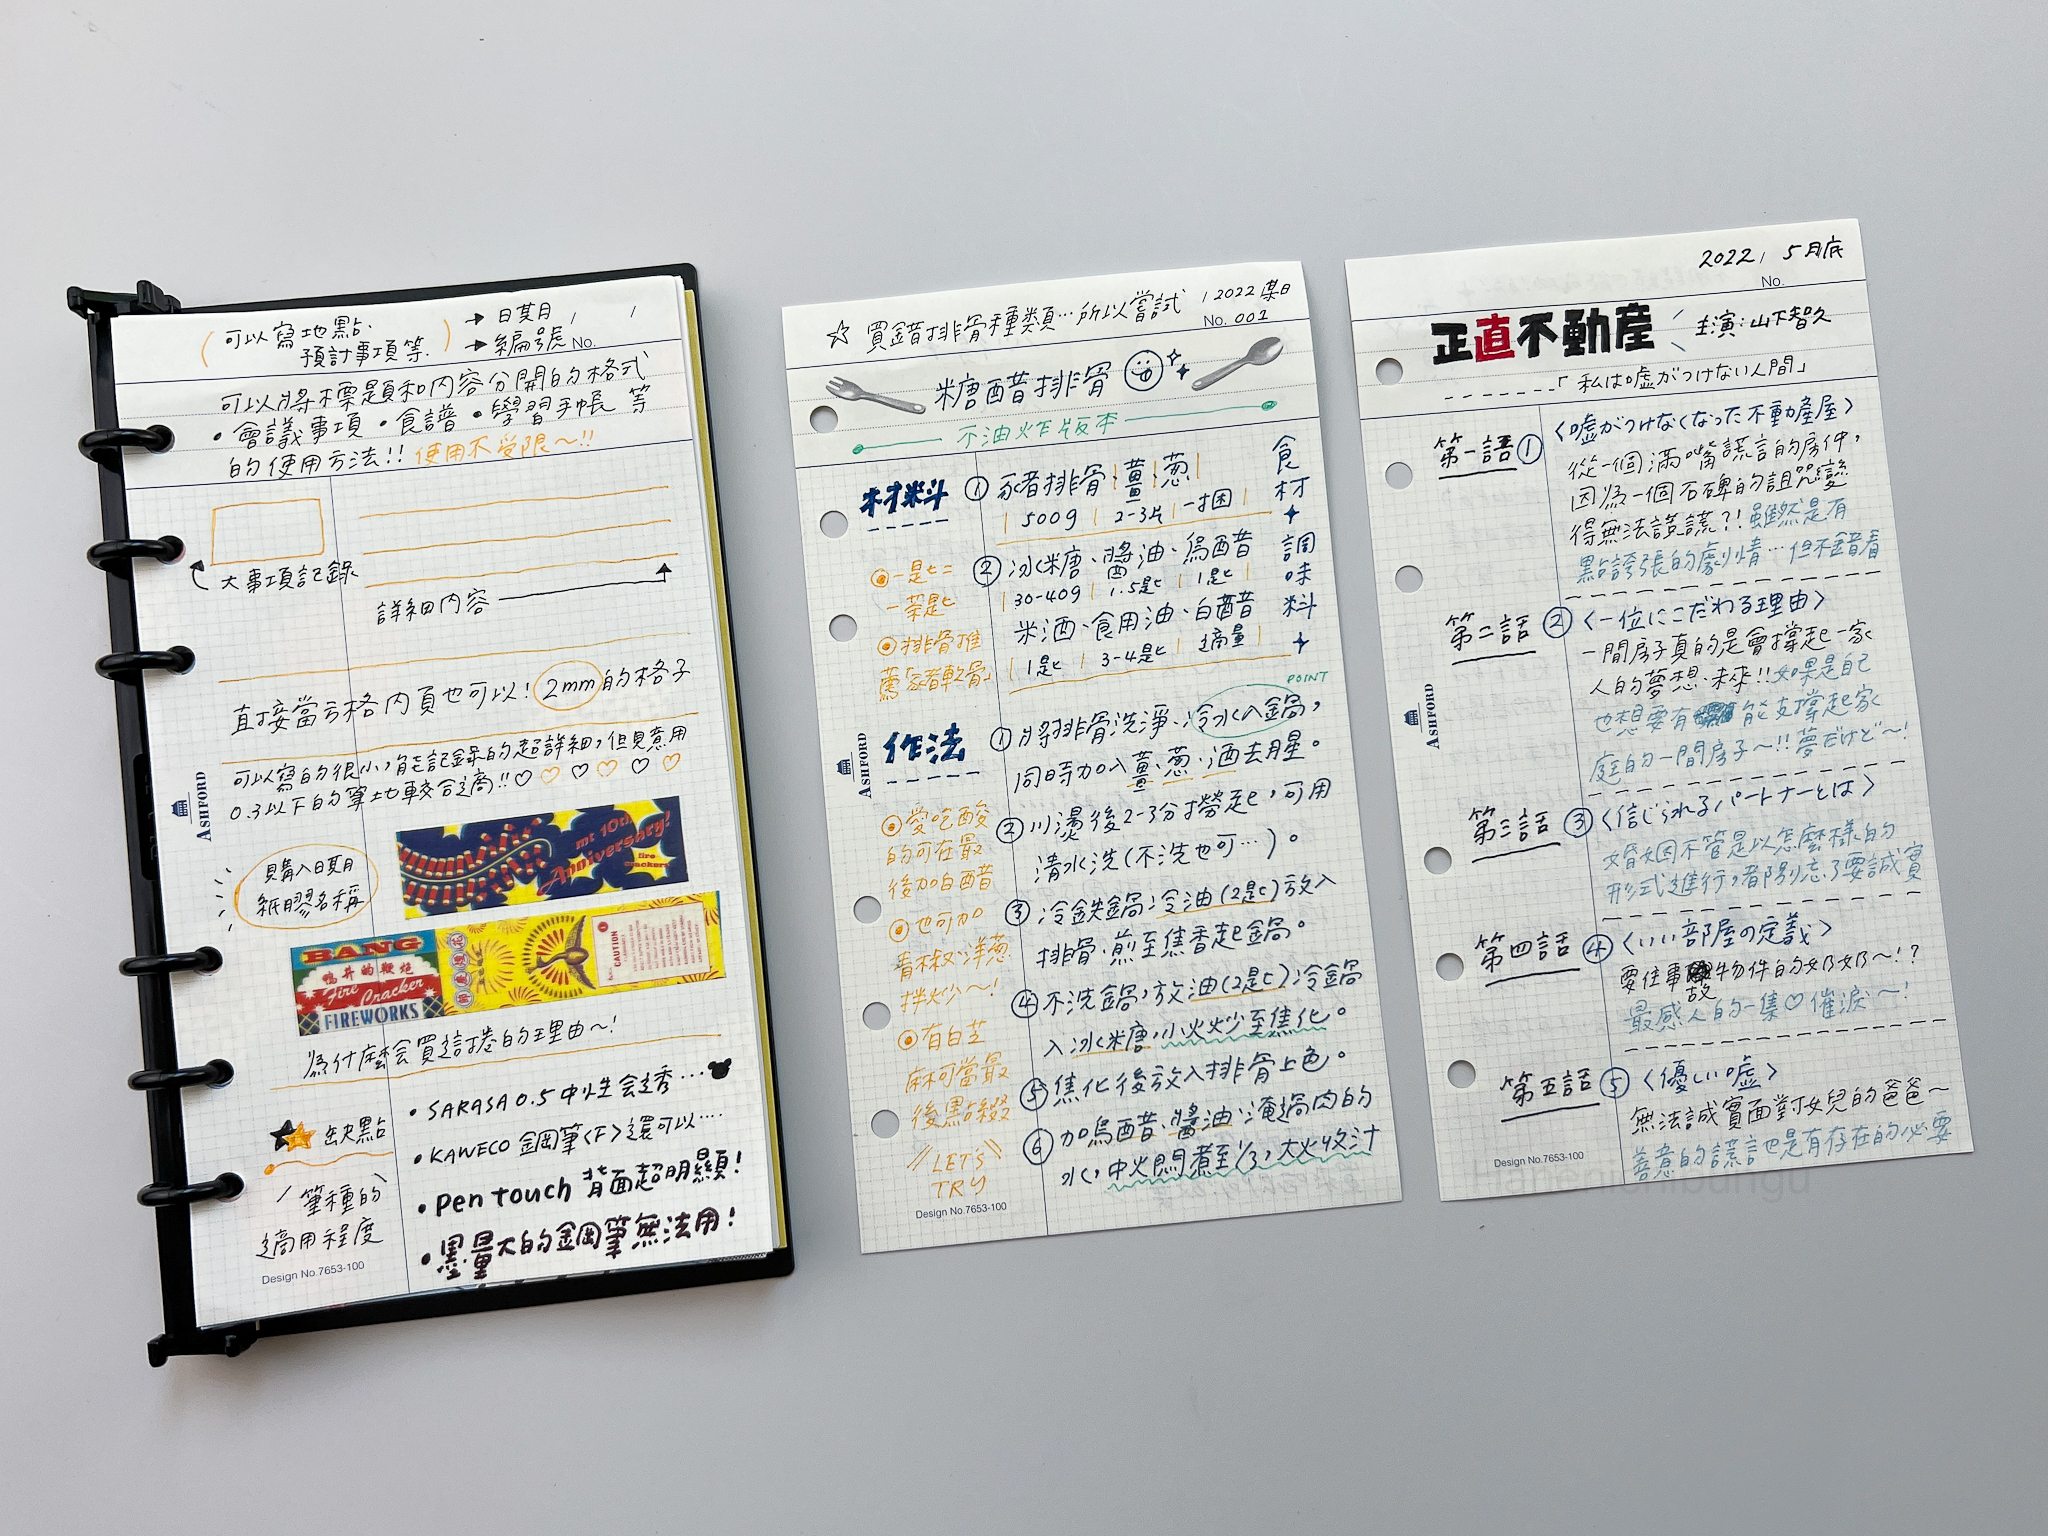 可以寫地點.
預計事項等.
→ 日期
→ 編號 No.
可以將標題和內容分開的格式
• 會議事項 • 食譜 • 學習手帳 等
的使用方法!! 使用不受限~!!
大事項記錄
詳細內容
直接當方格內頁也可以! 2mm的格子
可以寫的很小,能記錄的超詳細,但見意用
0.3以下的筆比較合適!!♡♡♡♡♡♡
ASHFORD
購入日期
紙膠名稱
mt 10th
Anniversary!
fire
crackers
BANG
鴨井的鞭炮
Fire
Cracker
FIREWORKS
CAUTION
為什麼會買這捲的理由~!
缺點
筆種的
適用程度
• SARASA 0.5 中性會透...
• KAWECO 鋼筆<F>還可以....
• pen touch 背面超明顯!
• 墨量大的鋼筆無法用!
Design No.7653-100
☆ 買錯排骨種類...所以嘗試
2022 某日
No. 001
糖醋排骨
不油炸版本
材料
① 豬排骨 薑 蔥
500g 2-3片 一把
食材
② 冰糖、醬油、烏醋
30-40g 1.5匙 1匙
米酒、食用油、白醋
1匙 3-4匙 適量
調味料
一匙=
一茶匙
排骨推
薦「豬軟骨」
POINT
作法
① 將排骨洗淨、冷水入鍋,
同時加入薑、蔥、酒去腥。
② 川燙後2-3分撈起,可用
清水洗(不洗也可...)。
③ 冷鐵鍋冷油(2匙)放入
排骨、煎至焦香起鍋。
④ 不洗鍋,放油(2匙)冷鍋
入冰糖,小火炒至焦化。
⑤ 焦化後放入排骨上色。
⑥ 加烏醋、醬油、淹過肉的
水,中火悶煮至1/3,大火收汁
愛吃酸
的可在最
後加白醋
也可加
青椒、洋蔥
拌炒~!
有白芝
麻可當最
後點綴
LET'S
TRY
ASHFORD
Design No.7653-100
2022, 5月底
No.
正直不動産
主演:山下智久
「私は嘘がつけない人間」
第一話 ① 〈嘘がつけなくなった不動産屋〉
從一個滿嘴謊言的房仲,
因為一個石碑的詛咒變
得無法說謊?! 雖然是有
點誇張的劇情...但不錯看
第二話 ② 〈一位にこだわる理由〉
一間房子真的是會撐起一家
人的夢想、未來!!如果是自己
也想要有能支撐起家
庭的一間房子~!!夢だけど~!
第三話 ③ 〈信じられるパートナーとは〉
婚姻不管是以怎麼樣的
形式進行,都別忘了要誠實
第四話 ④ 〈いい部屋の定義〉
要住事故物件的奶奶~!?
最感人的一集♡催淚~!
第五話 ⑤ 〈優しい嘘〉
無法誠實面對女兒的爸爸~
善意的謊言也是有存在的必要
ASHFORD
Design No.7653-100